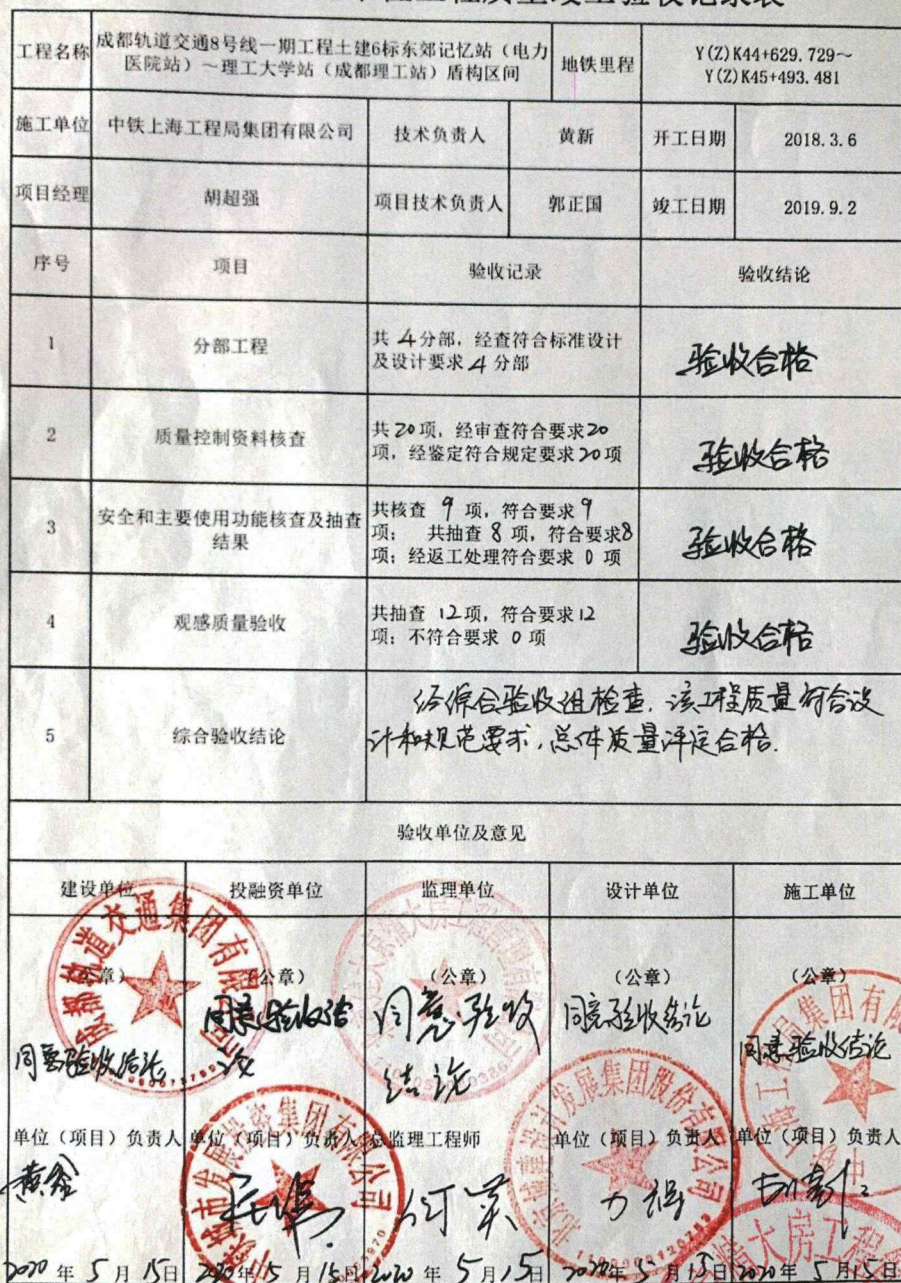 工程名称
成都轨道交通8号线一期工程土建6标东郊记忆站（电力
医院站）～理工大学站（成都理工站）盾构区间
地铁里程
Y(Z)K44+629.729～
Y(Z)K45+493.481
施工单位
中铁上海工程局集团有限公司
技术负责人
黄新
开工日期
2018.3.6
项目经理
胡超强
项目技术负责人
郭正国
竣工日期
2019.9.2
序号
项目
验收记录
验收结论
1
分部工程
共 4分部，经查符合标准设计
及设计要求 4 分部
验收合格
2
质量控制资料核查
共20项，经审查符合要求20
项，经鉴定符合规定要求20项
验收合格
3
安全和主要使用功能核查及抽查
结果
共核查 9 项，符合要求9
项； 共抽查 8 项，符合要求8
项；经返工处理符合要求 0 项
验收合格
4
观感质量验收
共抽查 12项，符合要求12
项；不符合要求 0 项
验收合格
5
综合验收结论
经综合验收组检查，该工程质量符合设
计和规范要求，总体质量评定合格.
验收单位及意见
建设单位
投融资单位
监理单位
设计单位
施工单位
（公章）
（公章）
（公章）
（公章）
（公章）
同意验收结论
同意验收结
论
同意验收
结论
同意验收结论
同意验收结论
单位（项目）负责人
单位（项目）负责人
总监理工程师
单位（项目）负责人
单位（项目）负责人
2020 年 5 月 15日
2020 年 5 月 15日
2020 年 5 月 15日
2020 年 5 月 15日
2020 年 5 月 15日